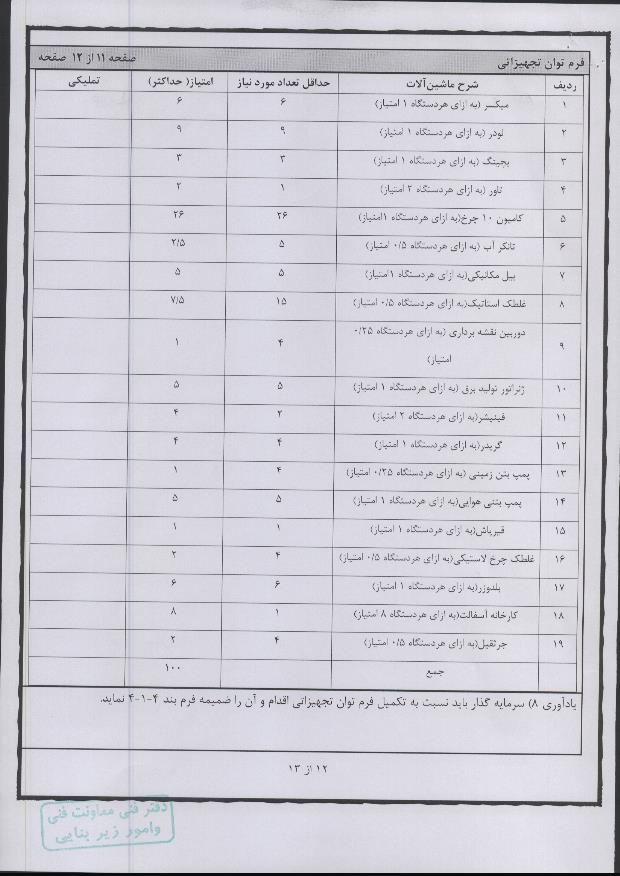 فرم توان تجهیزاتی صفحه ۱۱ از ۱۲ صفحه
ردیف شرح ماشین‌آلات حداقل تعداد مورد نیاز امتیاز( حداکثر) تملیکی
۱ میکسر (به ازای هردستگاه ۱ امتیاز) ۶ ۶
۲ لودر (به ازای هردستگاه ۱ امتیاز) ۹ ۹
۳ بچینگ (به ازای هردستگاه ۱ امتیاز) ۳ ۳
۴ تاور (به ازای هردستگاه ۲ امتیاز) ۱ ۲
۵ کامیون ۱۰ چرخ(به ازای هردستگاه ۱امتیاز) ۲۶ ۲۶
۶ تانکر آب (به ازای هردستگاه ۰/۵ امتیاز) ۵ ۲/۵
۷ بیل مکانیکی(به ازای هردستگاه ۱امتیاز) ۵ ۵
۸ غلطک استاتیک(به ازای هردستگاه ۰/۵ امتیاز) ۱۵ ۷/۵
۹ دوربین نقشه برداری (به ازای هردستگاه ۰/۲۵ ۴ ۱
امتیاز)
۱۰ ژنراتور تولید برق (به ازای هردستگاه ۱ امتیاز) ۵ ۵
۱۱ فینیشر(به ازای هردستگاه ۲ امتیاز) ۲ ۴
۱۲ گریدر(به ازای هردستگاه ۱ امتیاز) ۴ ۴
۱۳ پمپ بتن زمینی (به ازای هردستگاه ۰/۲۵ امتیاز) ۴ ۱
۱۴ پمپ بتنی هوایی(به ازای هردستگاه ۱ امتیاز) ۵ ۵
۱۵ قیرپاش(به ازای هردستگاه ۱ امتیاز) ۱ ۱
۱۶ غلطک چرخ لاستیکی(به ازای هردستگاه ۰/۵ امتیاز) ۴ ۲
۱۷ بلدوزر(به ازای هردستگاه ۱ امتیاز) ۶ ۶
۱۸ کارخانه آسفالت(به ازای هردستگاه ۸ امتیاز) ۱ ۸
۱۹ جرثقیل(به ازای هردستگاه ۰/۵ امتیاز) ۴ ۲
جمع ۱۰۰
یادآوری ۸) سرمایه گذار باید نسبت به تکمیل فرم توان تجهیزاتی اقدام و آن را ضمیمه فرم بند ۴-۱-۴ نماید.
۱۲ از ۱۳
دفتر فنی معاونت فنی
وامور زیر بنایی